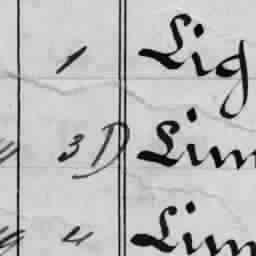 1 Lig
3 D Lim
4 Lim